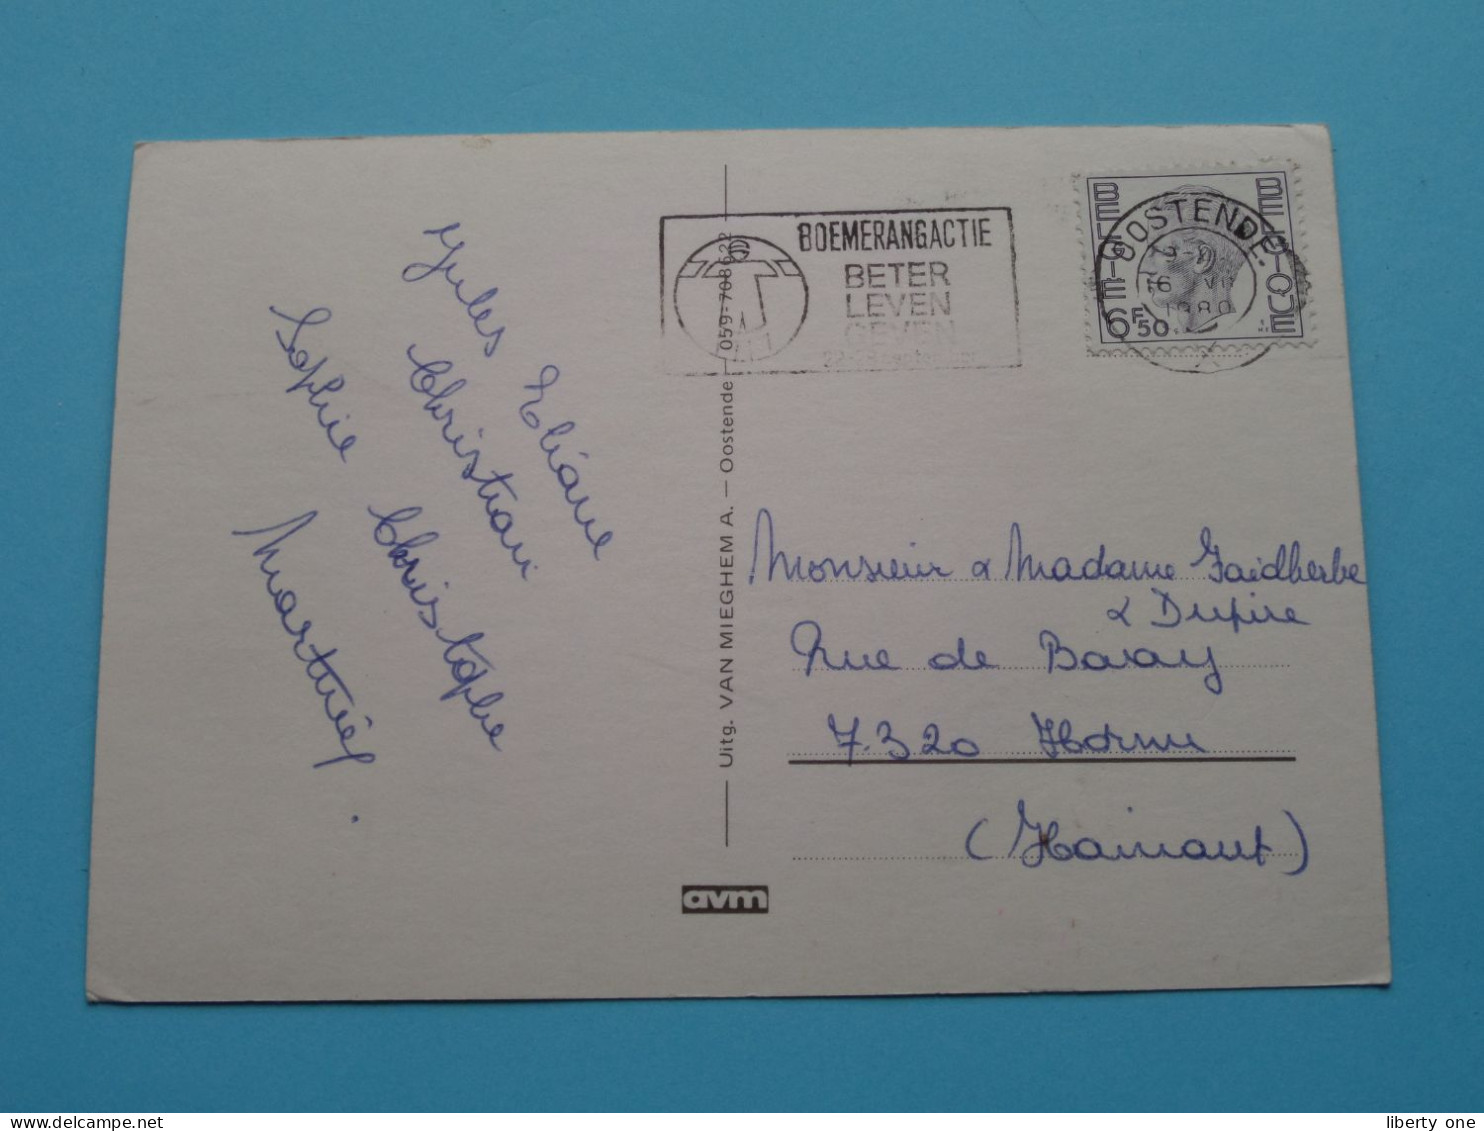 Jules Eliane
Christian
Sophie Christophe
Marthe
Uitg. VAN MIEGHEM A. — Oostende — 059-708622
avm
BOEMERANGACTIE
BETER
LEVEN
GEVEN
OOSTENDE
1980
BELGIË
BELGIQUE
6F50
Monsieur & Madame Gaidherbe
& Dupire
Rue de Bavay
7320 Hornu
(Hainaut)
liberty one